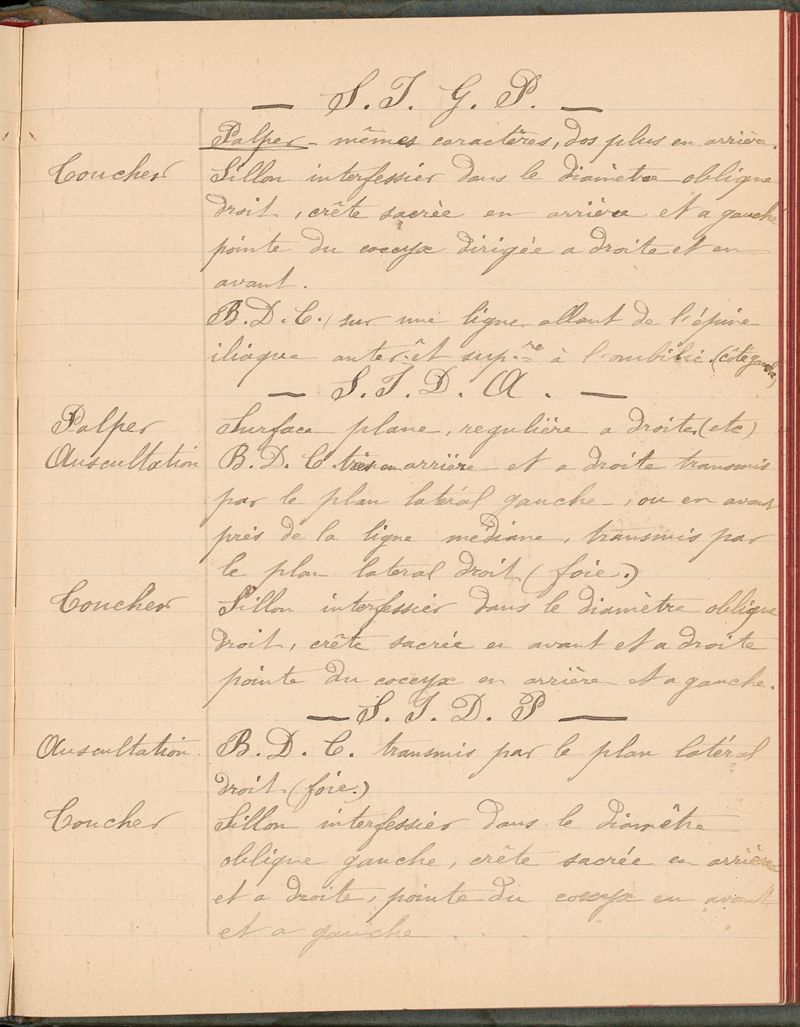 — S. I. G. P. —
Palper - mêmes caractères, dos plus en arrière.
Toucher Sillon interfessier dans le diamètre oblique
droit, crête sacrée en arrière et a gauche
pointe du coccyx dirigée a droite et en
avant.
B. D. C. sur une ligne allant de l'épine
iliaque antér.re et sup.re à l'ombilic. (côté gauche)
— S. I. D. A. —
Palper Surface plane, regulière a droite (etc)
Auscultation B. D. C. très en arrière et a droite transmis
par le plan latéral gauche -, ou en avant
près de la ligne médiane, transmis par
le plan lateral droit (foie.)
Toucher Sillon interfessier dans le diamètre oblique
droit, crête sacrée en avant et a droite
pointe du coccyx en arrière et a gauche.
— S. I. D. P —
Auscultation B. D. C. transmis par le plan latéral
droit (foie.)
Toucher Sillon interfessier dans le diamêtre
oblique gauche, crête sacrée en arrière
et a droite, pointe du coccyx en avant
et a gauche